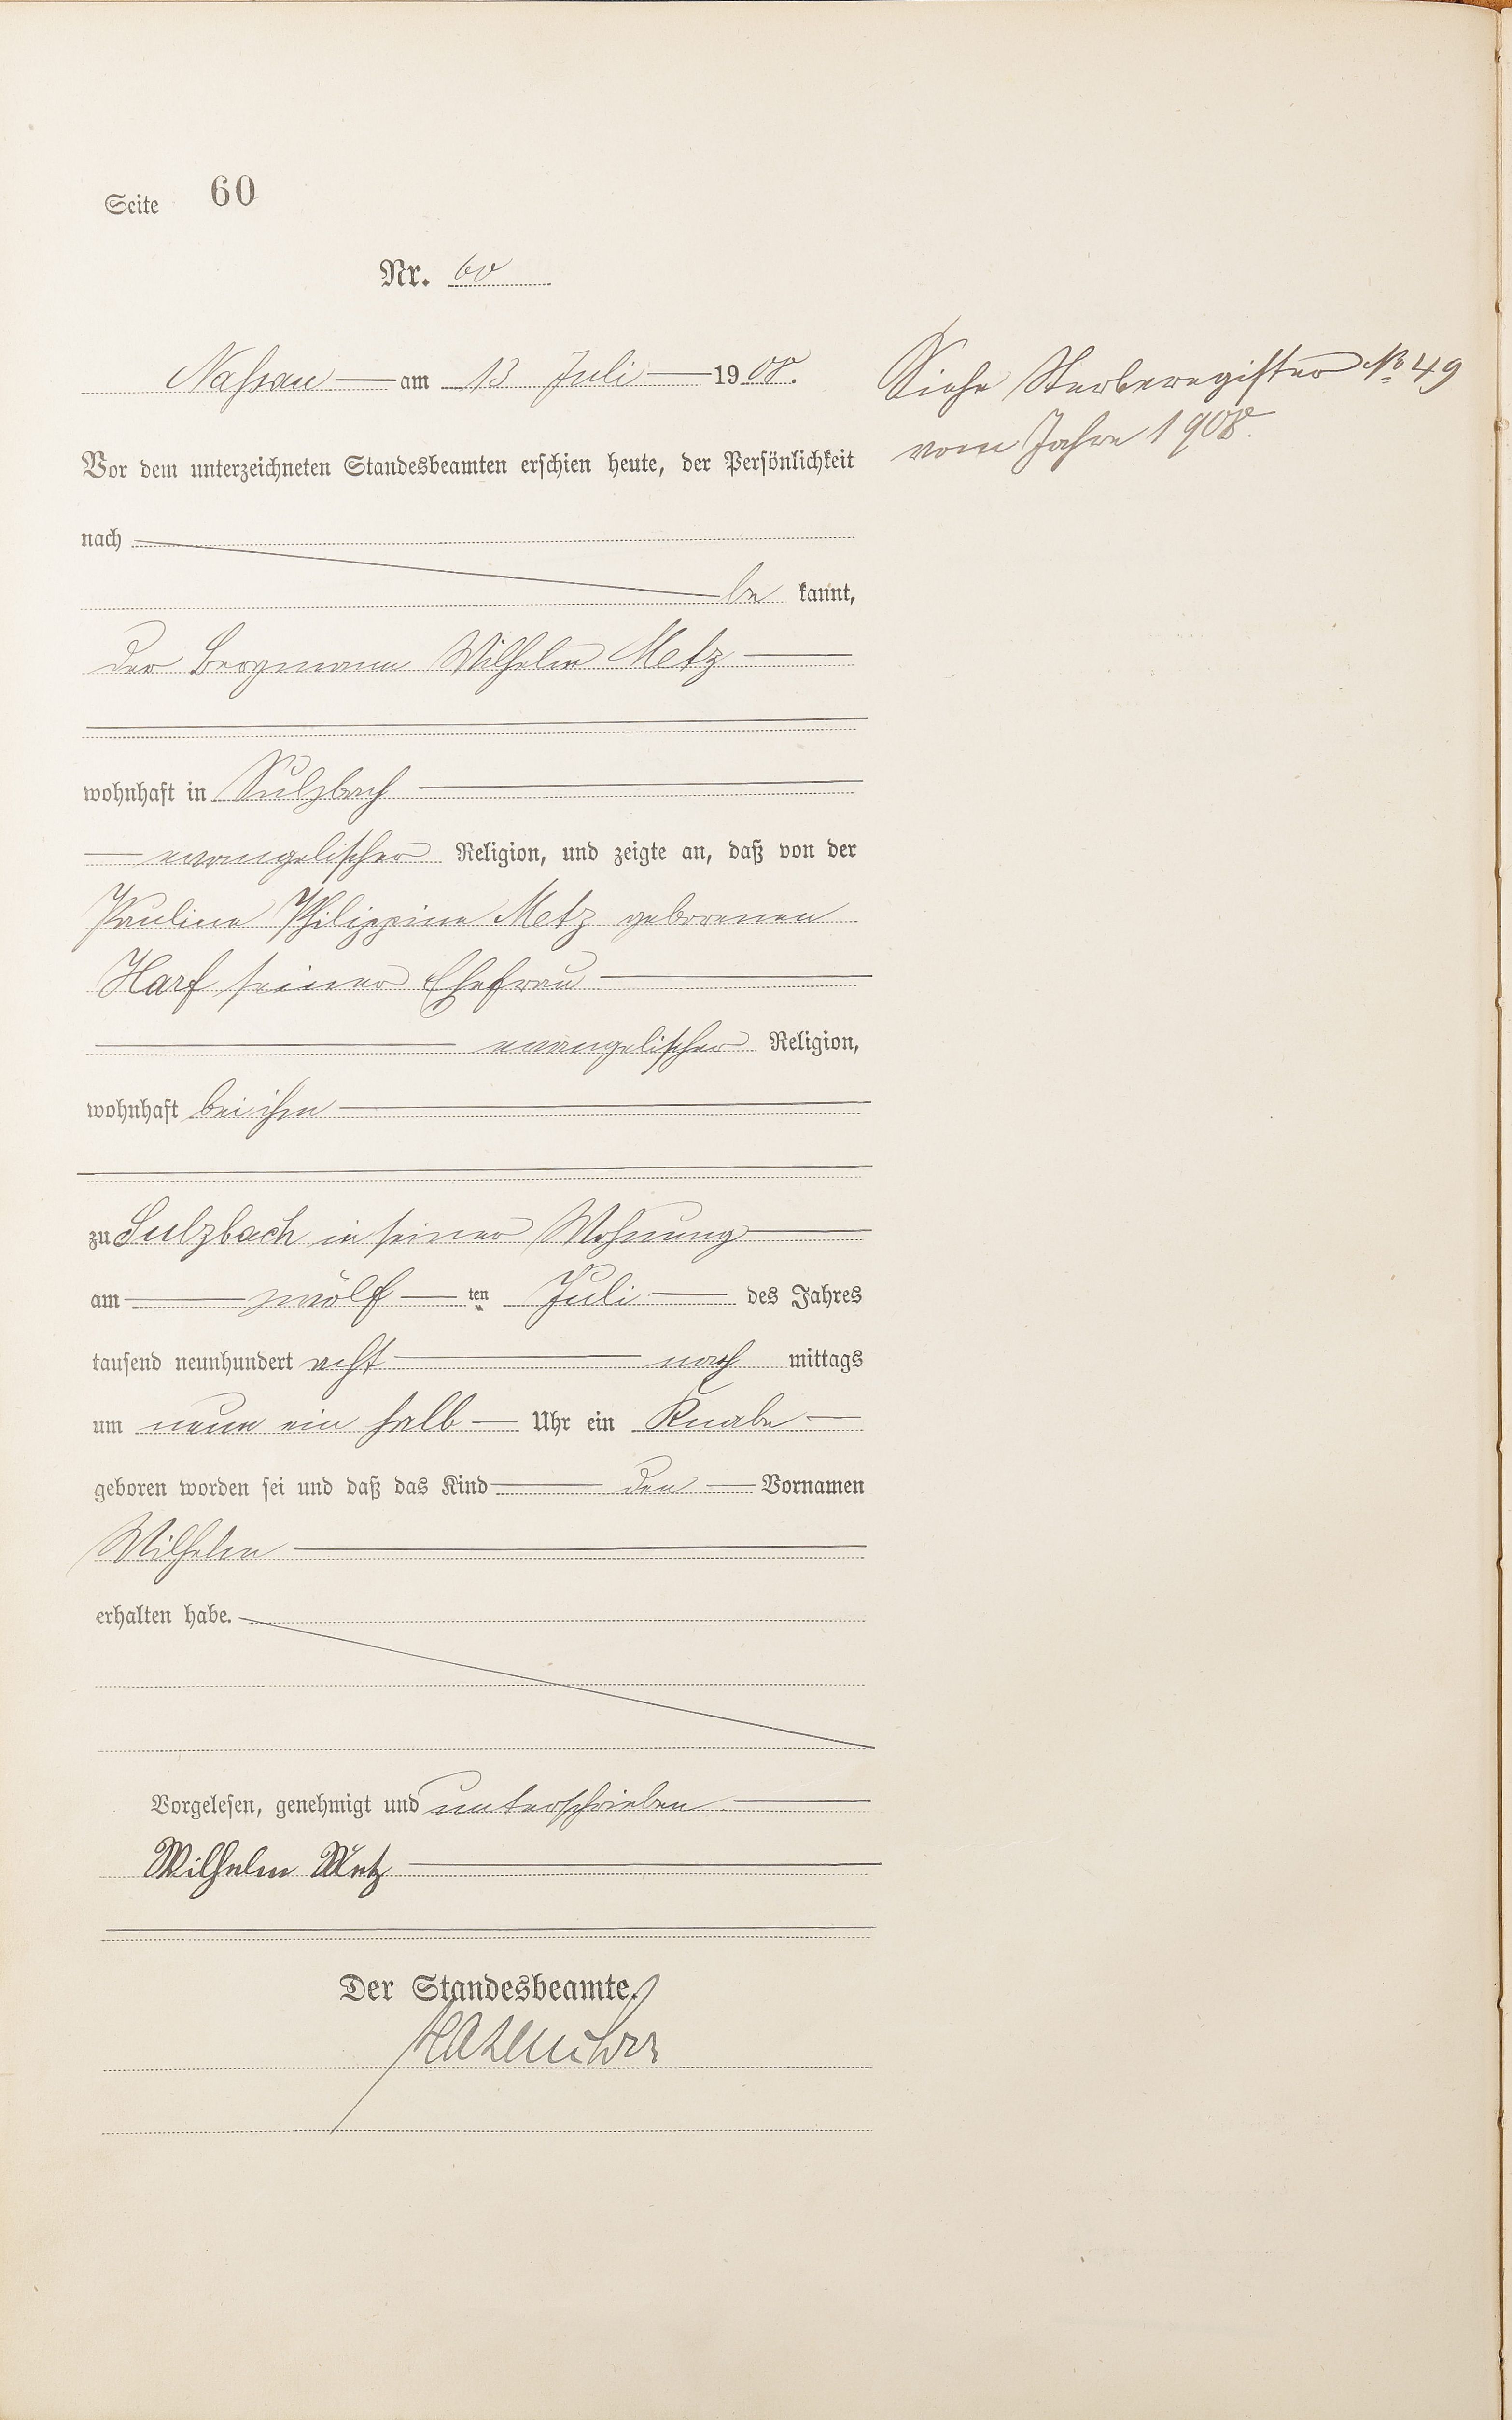 Seite 60
Nr. 60
Nassau am 13 Juli 1908.
Siehe Sterberegister No 49
vom Jahre 1908.
Vor dem unterzeichneten Standesbeamten erschien heute, der Persönlichkeit
nach
be kannt,
der Bergmann Wilhelm Metz
wohnhaft in Sulzbach
evangelischer Religion, und zeigte an, daß von der
Pauline Philippine Metz geborenen
Harf seiner Ehefrau
evangelischer Religion,
wohnhaft bei ihm
zu Sulzbach in seiner Wohnung
am zwölf ten Juli des Jahres
tausend neunhundert acht nach mittags
um neun ein halb Uhr ein Knabe
geboren worden sei und daß das Kind den Vornamen
Wilhelm
erhalten habe.
Vorgelesen, genehmigt und unterschrieben
Wilhelm Metz
Der Standesbeamte.